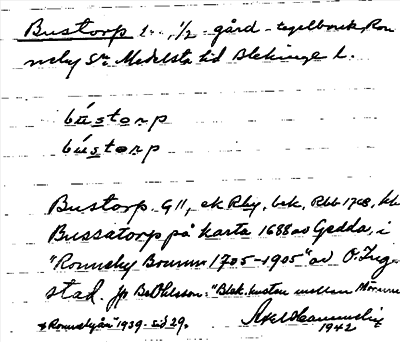 Bustorp 1 1/2 gård - tegelbruk, Ron
neby Sn, Medelsta hd Blekinge l.
bústorp
bústorp
Bustorp. G 11, ek Rby, bek, Rbb 1748, kb
Bussatorp på karta 1688 av Gedda, i
"Ronneby Brunn 1705-1905" av O. Inge-
stad. Jfr Bo Ohlsson: "Blek. kusten mellan Mörrum
o Ronnebyån" 1939. sid 29.
Axel 
1942